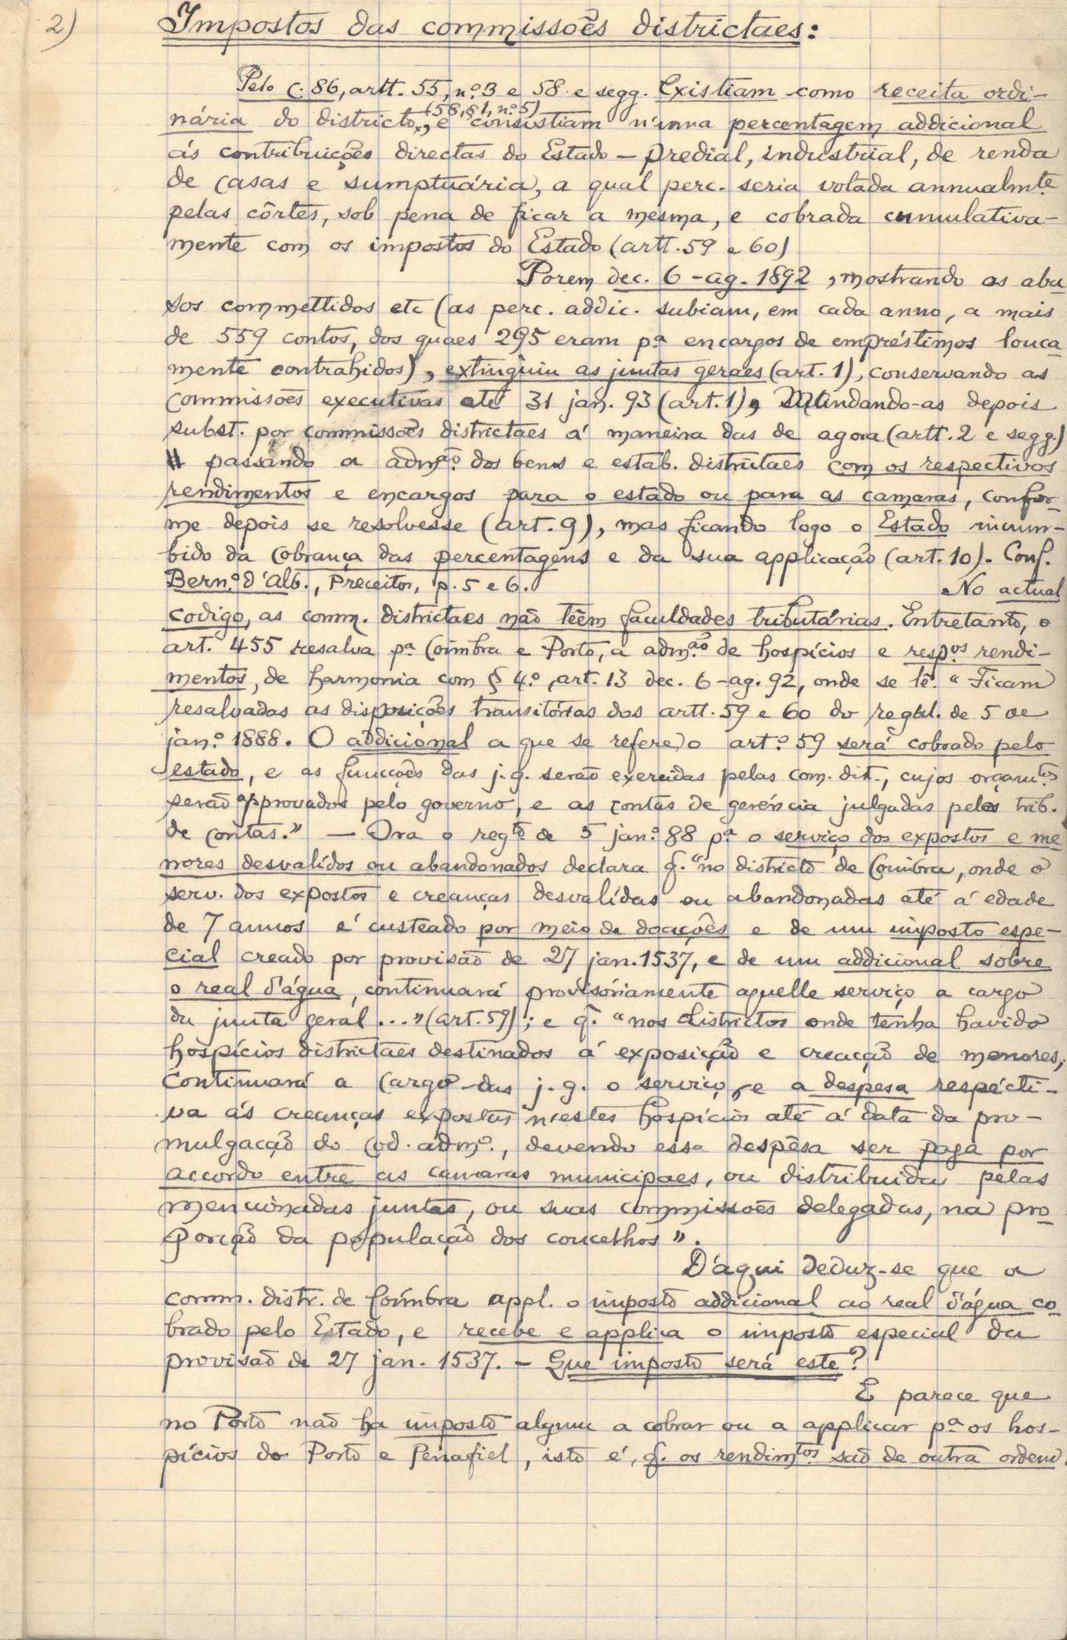 2)
Impostos das commissoẽs districtaes:
Pelo C. 86, artt. 55, nº 3 e 58 e segg. Existiam como receita ordi-
(58, § 1, nº 5)
nária do districto, e consistiam n'uma percentagem addicional
ás contribuições directas do Estado – predial, industrial, de renda
de casas e sumptuária, a qual perc. seria votada annualmte
pelas côrtes, sob pena de ficar a mesma, e cobrada cumulativa-
mente com os impostos do Estado (artt. 59 e 60)
Porem dec. 6-ag. 1892, mostrando os abu
sos commettidos etc (as perc. addic. subiam, em cada anno, a mais
de 559 contos, dos quaes 295 eram pª encargos de empréstimos louca
mente contrahidos), extinguiu as juntas geraes (art. 1), conservando as
commissoẽs executivas até 31 jan. 93 (art. 1), Mandando-as depois
subst. por commissoẽs districtaes á maneira das de agora (artt. 2 e segg.)
passando a admão dos bens e estab. districtaes com os respectivos
rendimentos e encargos para o estado ou para as camaras, confor-
me depois se resolvesse (art. 9), mas ficando logo o Estado incum-
bido da cobrança das percentagens e da sua applicação (art. 10). Conf.
Bern.º d'Alb., Preceitos, p. 5 e 6.
No actual
codigo, as comm. districtaes não têem faculdades tributárias. Entretanto, o
art. 455 resalva pª Coimbra e Porto, a admão de hospícios e resp.os rendi-
mentos, de harmonia com § 4.º, art. 13 dec. 6-ag. 92, onde se lê: "Ficam
resalvadas as disposições transitórias dos artt. 59 e 60 do regul. de 5 de
jan.º 1888. O addicional a que se refere o art.º 59 será cobrado pelo
estado, e as funcções das j. g. serão exercidas pelas com. dist., cujos orçamtos
serão approvados pelo governo, e as contas de geréncia julgadas pelo trib.
de contas." — Ora o reg.to de 5 jan.º 88 pª o serviço dos expostos e me
nores desvalídos ou abandonados declara q. "no districto de Coimbra, onde o
serv. dos expostos e creanças desvalídas ou abandonadas até á edade
de 7 annos é custeado por meio de doações e de um imposto espe-
cial creado por provisão de 27 jan. 1537, e de um addicional sobre
o real d'água, continuará provisóriamente aquelle serviço a cargo
da junta geral ..." (art. 59); e q. "nos districtos onde tenha havido
hospícios districtaes destinados á exposição e creação de menores,
continuará a cargo das j. g. o serviço, e a despesa respecti-
va ás creanças expostas n'estes hospícios até á data da pro-
mulgação do cod. admº., devendo essa despêsa ser paga por
accordo entre as camaras municipaes, ou distribuida pelas
mencionadas juntas, ou suas commissoẽs delegadas, na pro
porção da população dos concelhos".
D'aqui deduz-se que a
comm. distr. de Coímbra appl. o imposto addicional ao real d'água co
brado pelo Estado, e recebe e applica o imposto especial da
provisão de 27 jan. 1537. – Que imposto será este?
E parece que
no Porto não ha imposto algum a cobrar ou a applicar pª os hos-
pícios do Porto e Penafiel, isto é, q. os rendimtos são de outra ordem.